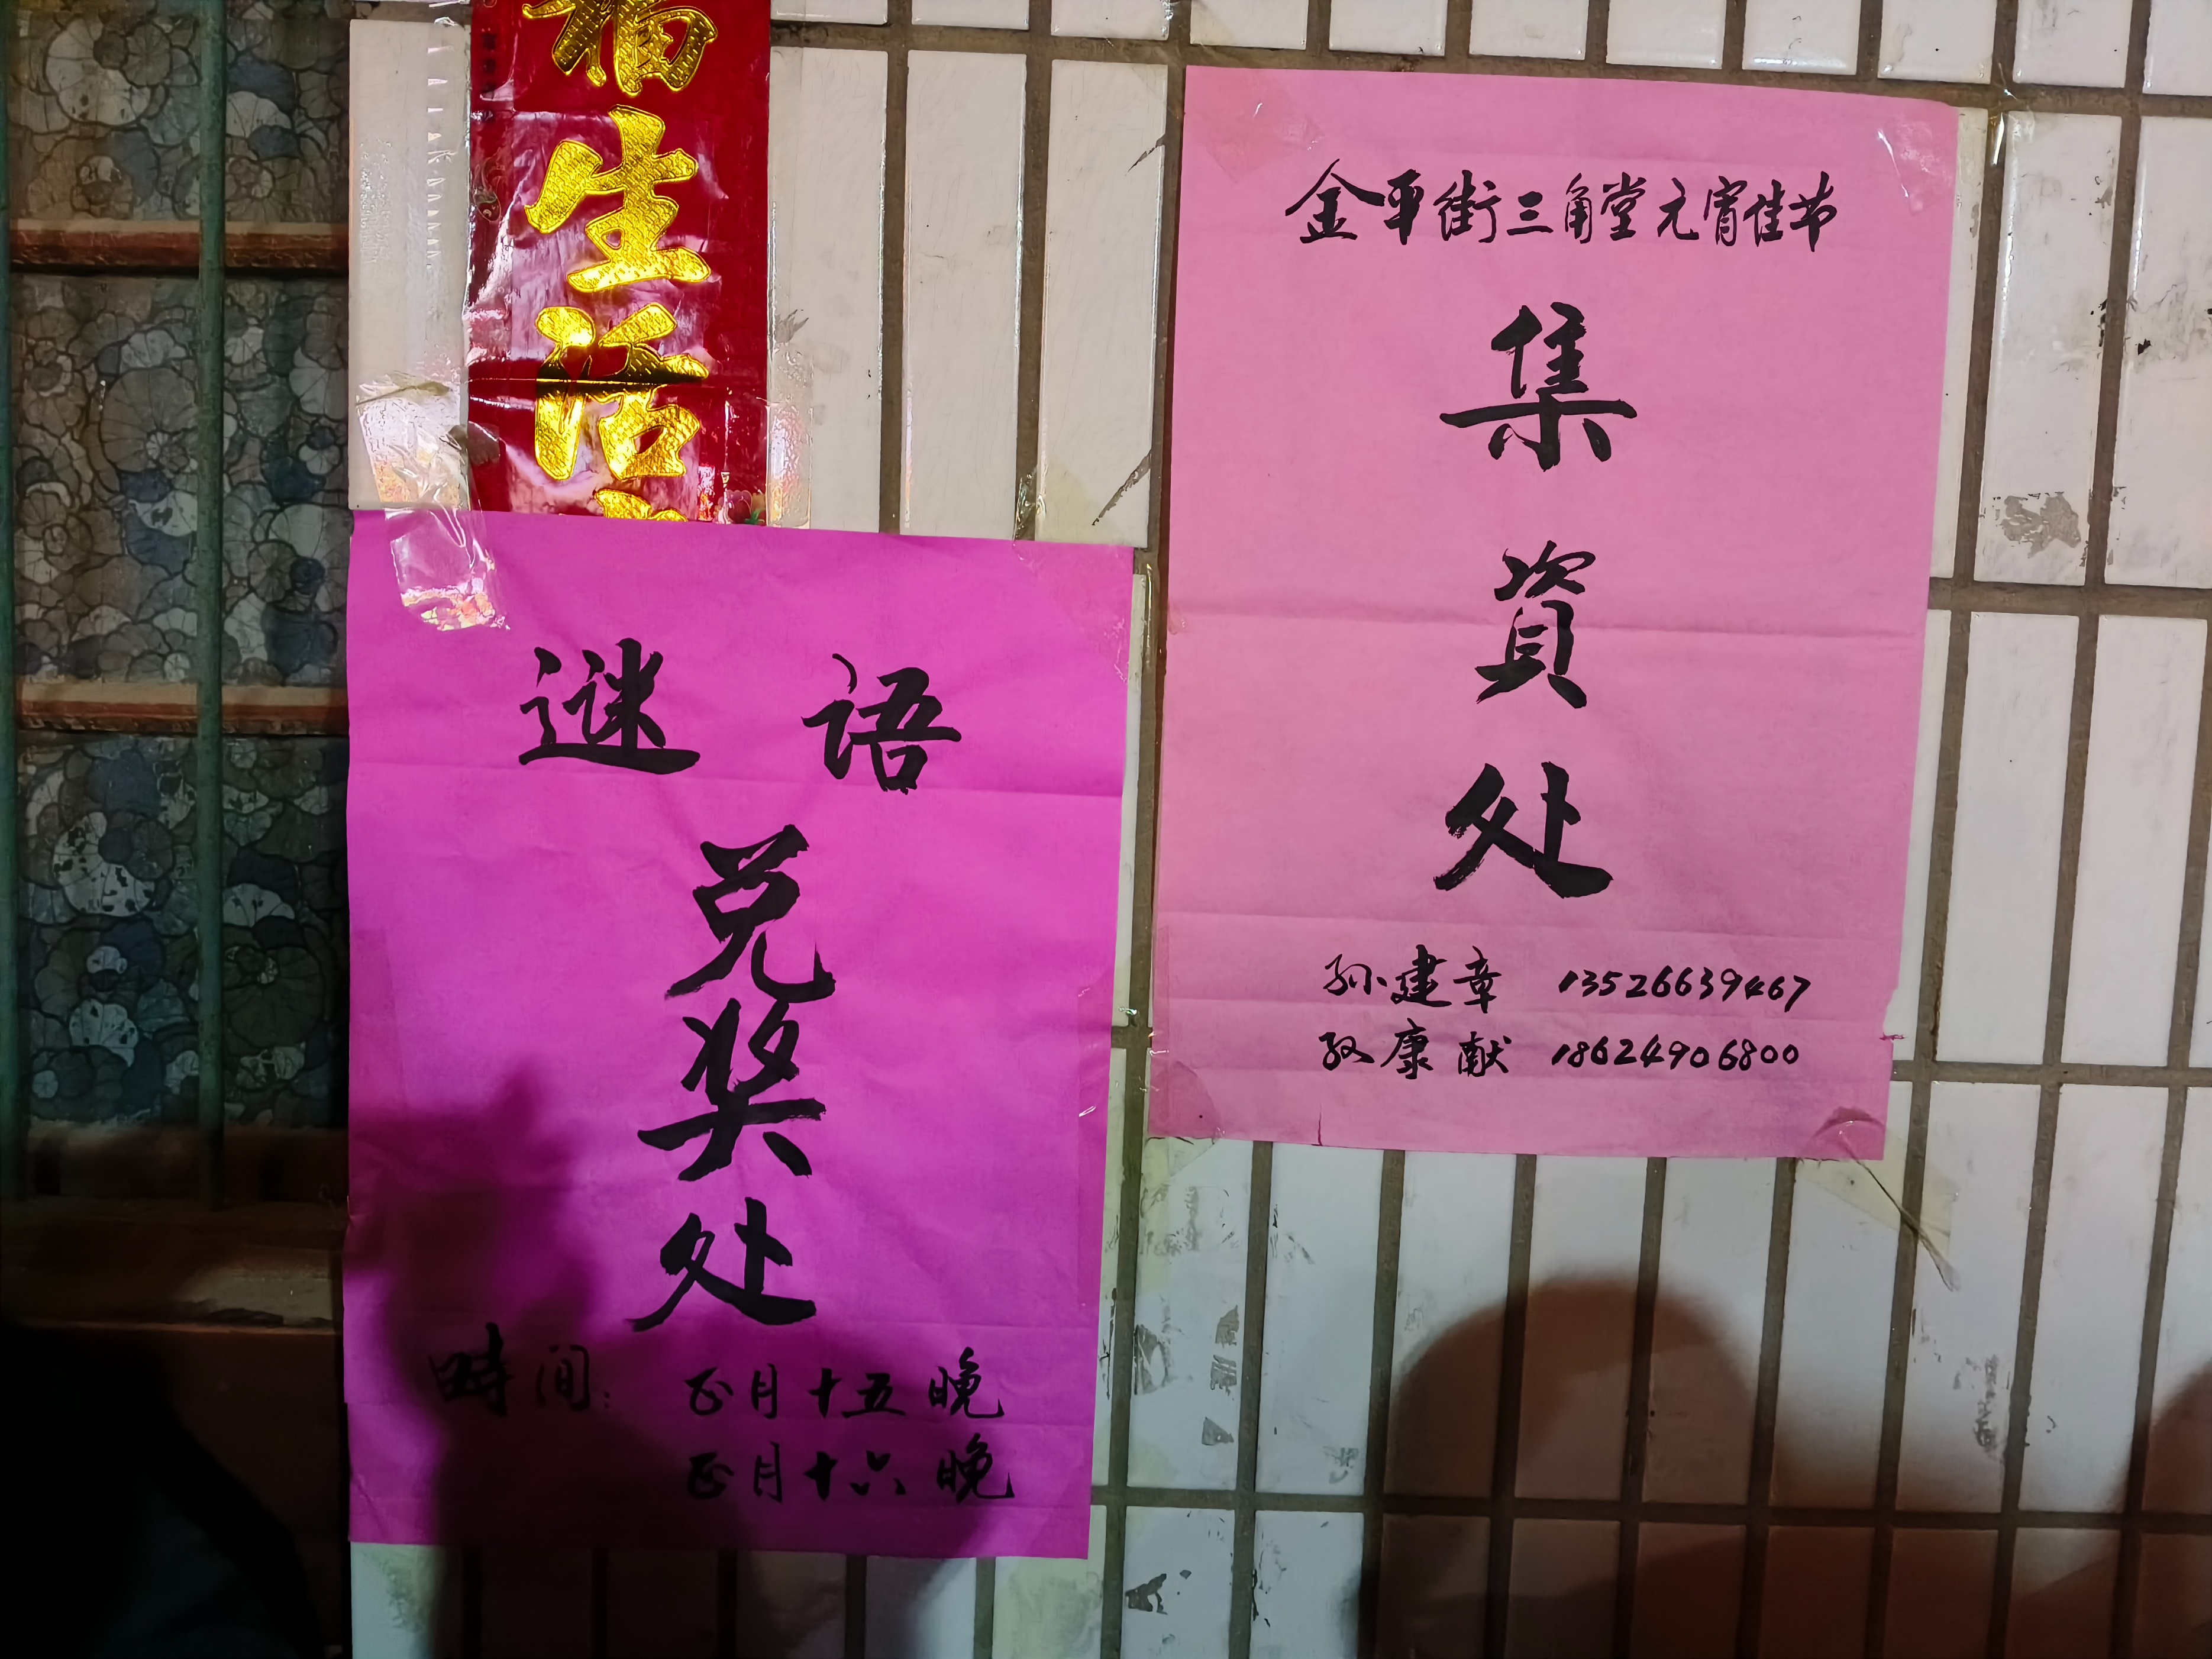 福
生
活
谜 语
兑
奖
处
時间:
正月十五晚
正月十六晚
金平街三角堂元宵佳节
集
資
处
孙建章 13526639467
孙康献 18624906800